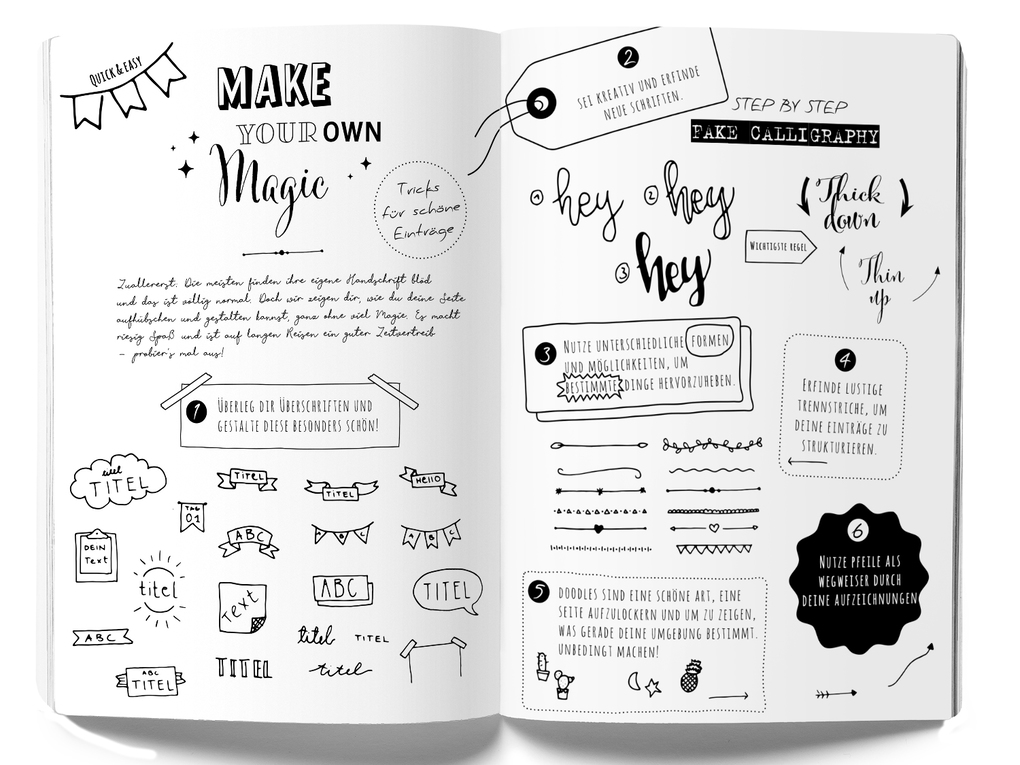 QUICK & EASY
MAKE
YOUR OWN
Magic
Tricks
für schöne
Einträge
Zuallererst: Die meisten finden ihre eigene Handschrift blöd
und das ist völlig normal. Doch wir zeigen dir, wie du deine Seite
aufhübschen und gestalten kannst, ganz ohne viel Magie. Es macht
riesig Spaß und ist auf langen Reisen ein guter Zeitvertreib
– probier's mal aus!
1
ÜBERLEG DIR ÜBERSCHRIFTEN UND
GESTALTE DIESE BESONDERS SCHÖN!
titel
TITEL
TAG
01
TITEL
TITEL
HEllO
DEIN
Text
titel
ABC
ABC
ABC
Text
ABC
TITEL
ABC
ABC
TITEL
TITEL
titel
TITEL
titel
2
SEI KREATIV UND ERFINDE
NEUE SCHRIFTEN.
STEP BY STEP
FAKE CALLIGRAPHY
1 hey
2 hey
3 hey
WICHTIGSTE REGEL
Thick
down
Thin
up
3
NUTZE UNTERSCHIEDLICHE FORMEN
UND MÖGLICHKEITEN, UM
BESTIMMTE DINGE HERVORZUHEBEN.
4
ERFINDE LUSTIGE
TRENNSTRICHE, UM
DEINE EINTRÄGE ZU
STRUKTURIEREN.
5
DOODLES SIND EINE SCHÖNE ART, EINE
SEITE AUFZULOCKERN UND UM ZU ZEIGEN,
WAS GERADE DEINE UMGEBUNG BESTIMMT.
UNBEDINGT MACHEN!
6
NUTZE PFEILE ALS
WEGWEISER DURCH
DEINE AUFZEICHNUNGEN